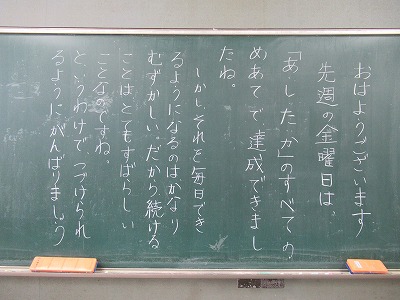 おはようございます
先週の金曜日は、
「あ、し、た、か」のすべての
めあてで、達成できまし
たね。
しかし、それを毎日でき
るようになるのはかなり
むずかしい。だから続ける
ことはとてもすばらしい
ことなのですね。
というわけで つづけられ
るようにがんばりましょう